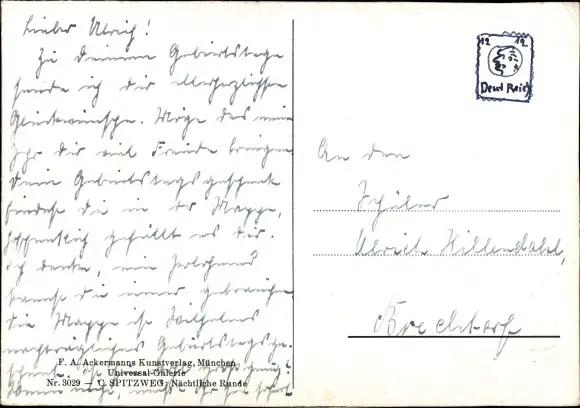 Lieber Ulrich!
Zu Deinem Geburtstage
sende ich dir allerherzlichste
Glückwünsche. Möge das neue
Jahr dir viel Freude bringen.
Dein Geburtstagsgeschenk
findest du in der Mappe,
hoffentlich gefällt es dir.
Ich denke, ein
kannst du immer gebrauchen
die Mappe ist
nachträgliches Geburtstagsge-
F. A. Ackermanns Kunstverlag, München
Universal-Galerie
Nr. 3029 — C. SPITZWEG, Nächtliche Runde
12 12
Deut Reich
An den
Schüler
Ulrich Hillendahl,
Brechtorf